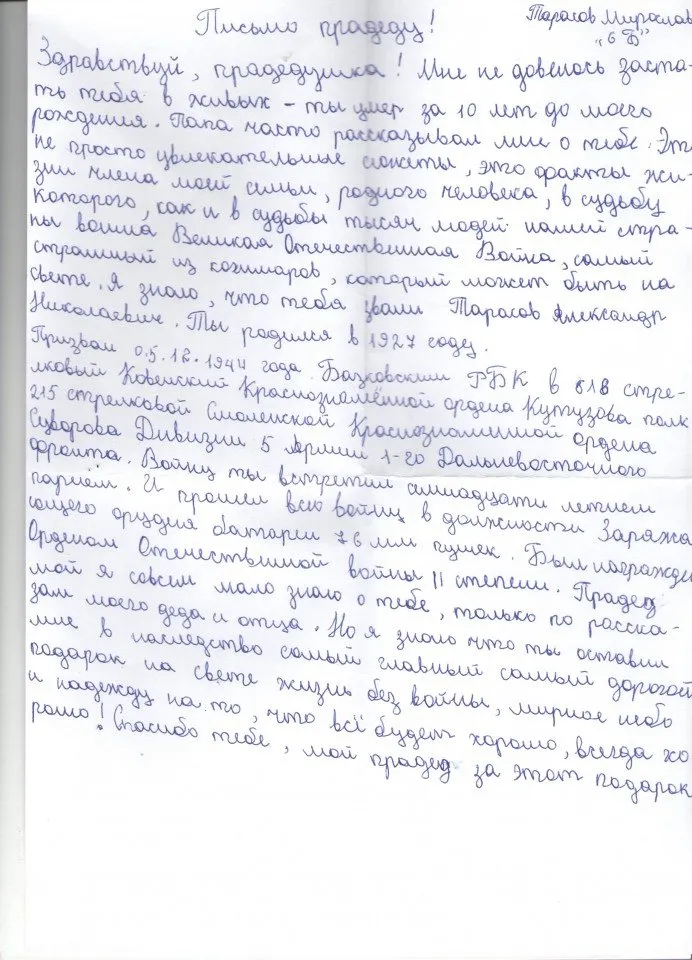 Письмо прадеду!
Тарасов Мирослав
"6 Б"
Здравствуй, прадедушка! Мне не довелось заста-
ть тебя в живых - ты умер за 10 лет до моего
рождения. Папа часто рассказывал мне о тебе. Эт
не просто увлекательные сюжеты, это факты жи-
зни члена моей семьи, родного человека, в судьбу
которого, как и в судьбы тысяч людей нашей стра-
ны вошла Великая Отечественная Война, самый
страшный из кошмаров, который может быть на
свете. Я знаю, что тебя звали Тарасов Александр
Николаевич. Ты родился в 1927 году.
Призван 05.12.1944 года. Базковским РБК в 618 стре-
лковый Ковенский Краснознамённой ордена Кутузова полк
215 стрелковой Смоленской Краснознаменной ордена
Суворова Дивизии 5 Армии 1-го Дальневосточного
фронта. Войну ты встретил семнадцати летнем
парнем. И прошел всю войну в должности Заряжа
ющего орудия батареи 76 мм пушек. Был награжде
Орденом Отечественной войны II степени. Прадед
мой я совсем мало знаю о тебе, только по расска-
зам моего деда и отца. Но я знаю что ты оставил
мне в наследство самый главный самый дорогой
подарок на свете жизнь без войны, мирное небо
и надежду на то, что всё будет хорошо, всегда хо
рошо! Спасибо тебе, мой прадед за этот подарок